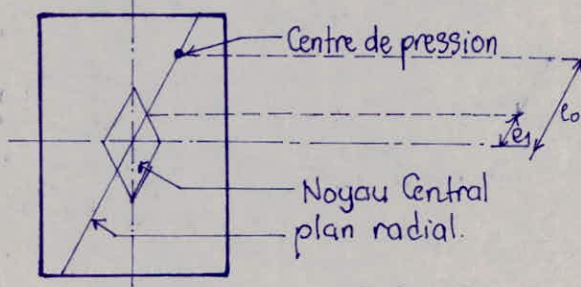 Centre de pression
e₀
e₁
Noyau Central
plan radial.